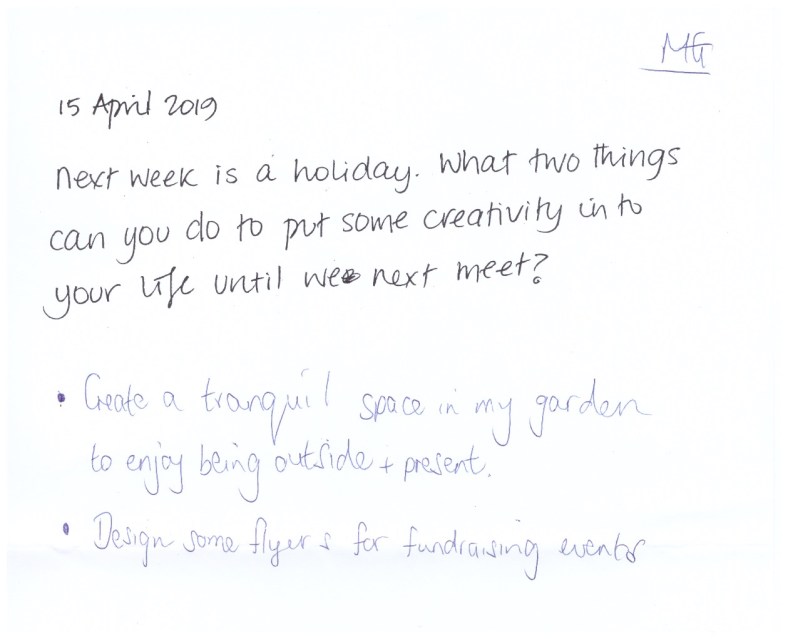 MG
15 April 2019
next week is a holiday. What two things
can you do to put some creativity in to
your life until we next meet?
• Create a tranquil space in my garden
to enjoy being outside + present.
• Design some flyers for fundraising events